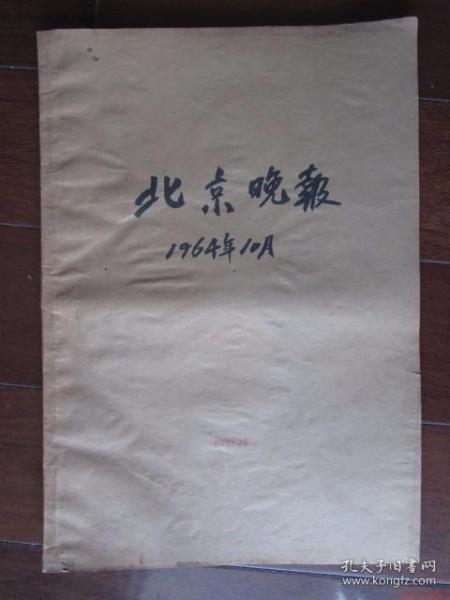 北京晚報
1964年10月
孔夫子旧书网
www.kongfz.com